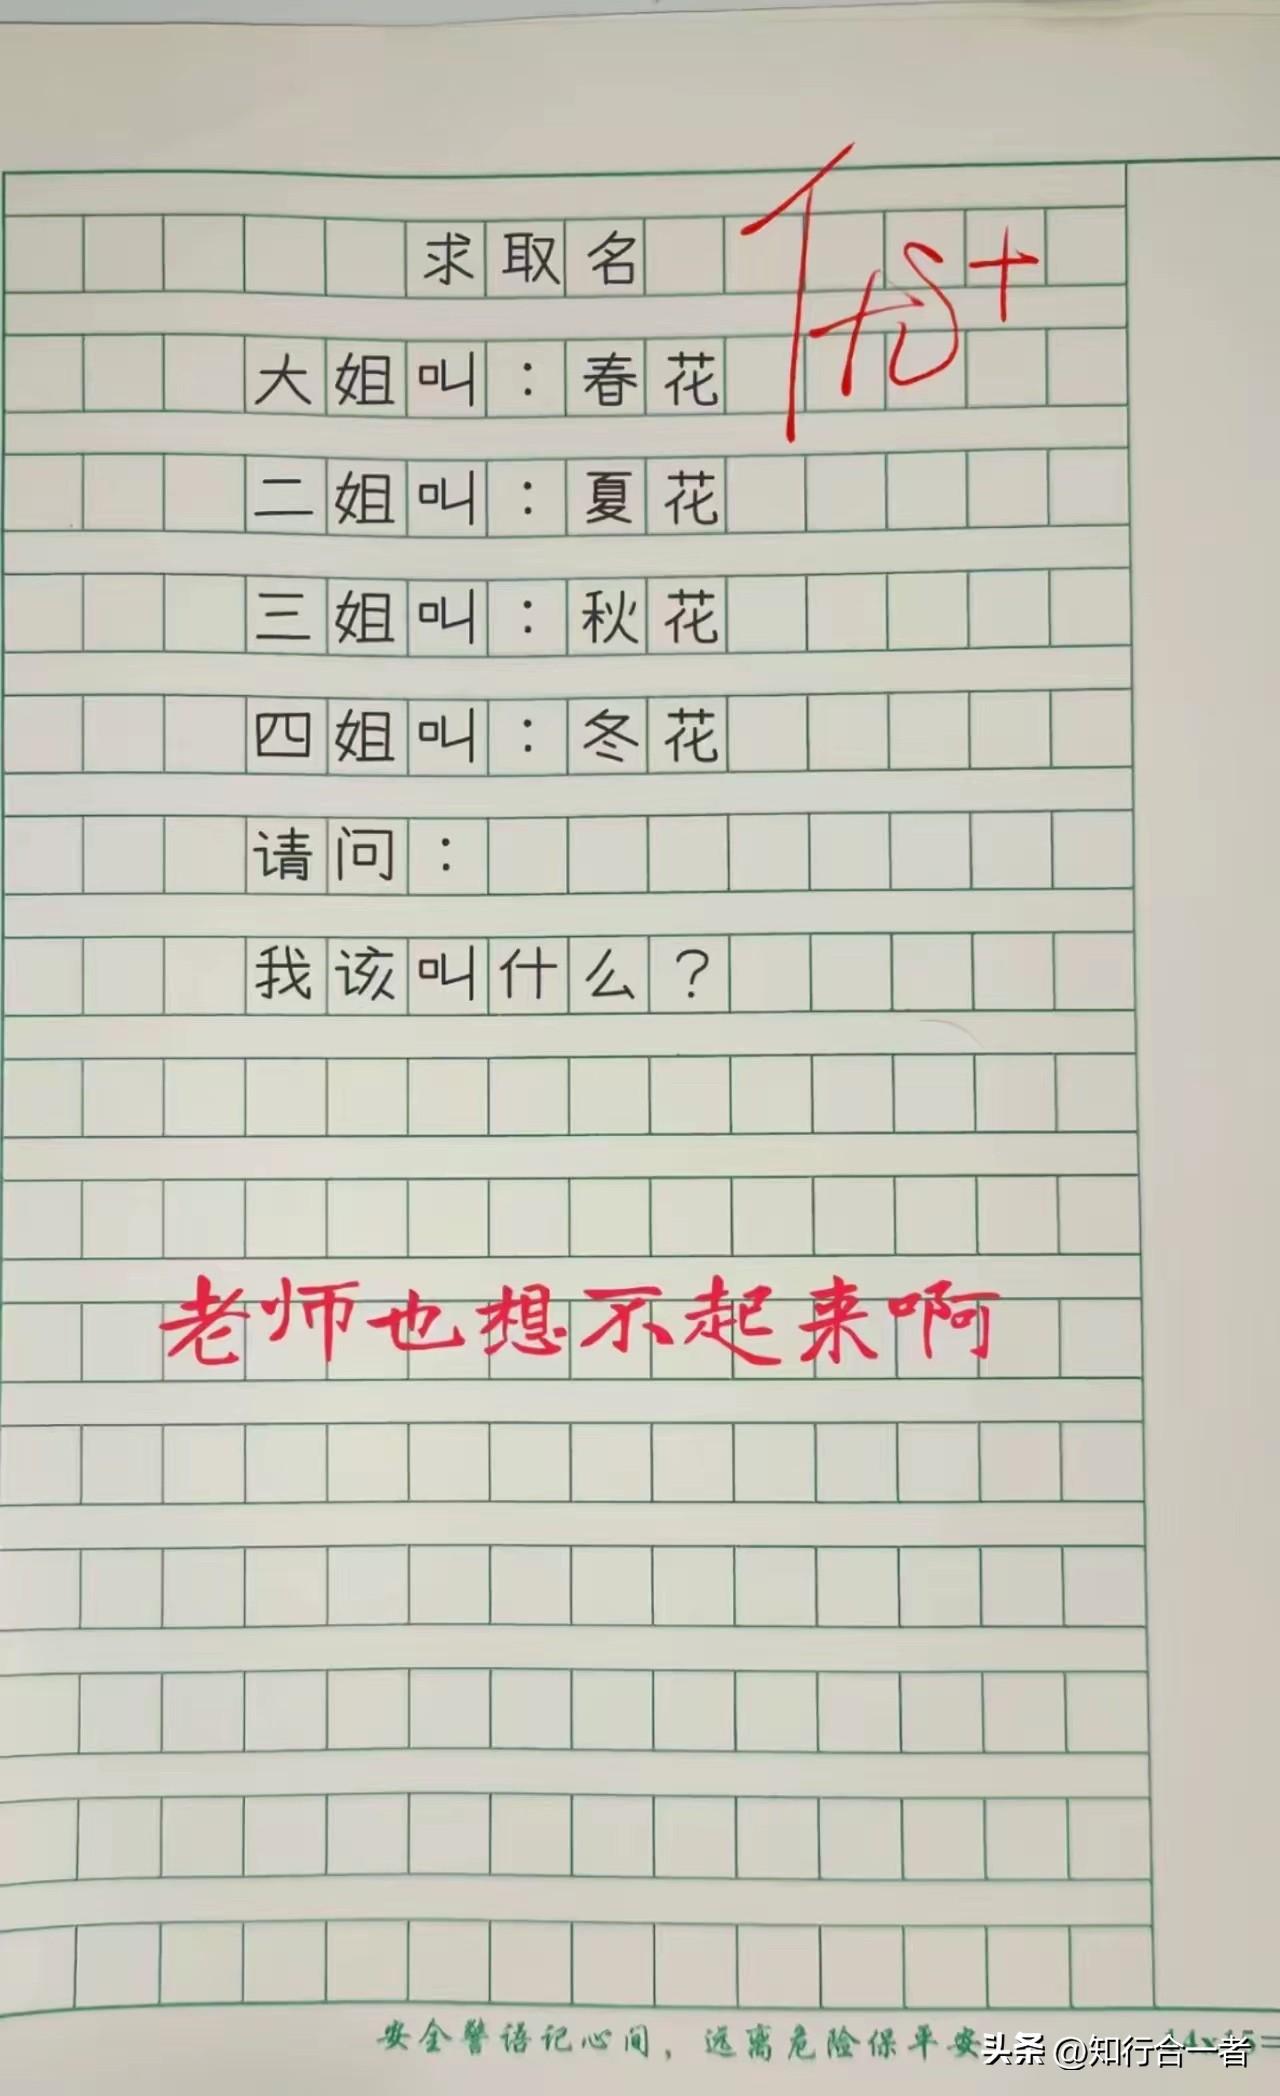 求取名
优+
大姐叫：春花
二姐叫：夏花
三姐叫：秋花
四姐叫：冬花
请问：
我该叫什么？
老师也想不起来啊
安全警语记心间，远离危险保平安
头条 @知行合一者